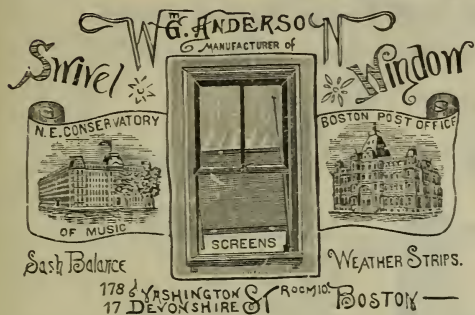 Wm G. ANDERSON
MANUFACTURER of
Swivel Window
N.E. CONSERVATORY
OF MUSIC
BOSTON POST OFFICE
SCREENS
Sash Balance
WEATHER STRIPS.
178 WASHINGTON
17 DEVONSHIRE ST ROOM 10. BOSTON